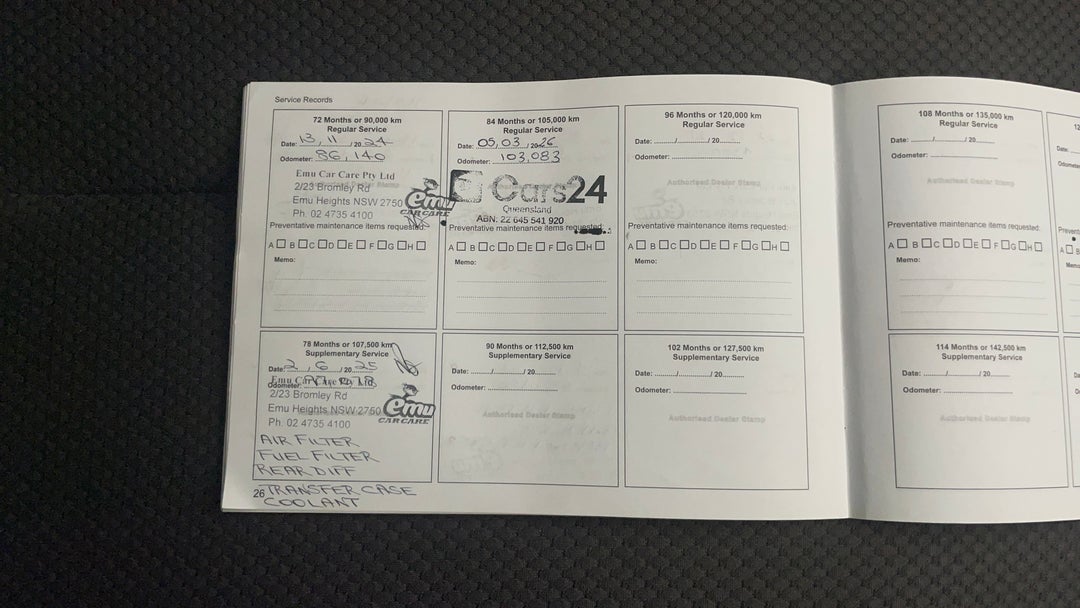 Service Records
72 Months or 90,000 km
Regular Service
Date: 13, 11 / 20 24
Odometer: 86, 140
Emu Car Care Pty Ltd
2/23 Bromley Rd
Emu Heights NSW 2750
Ph. 02 4735 4100
emu
CAR CARE
Preventative maintenance items requested:
A B C D E F G H
Memo:
84 Months or 105,000 km
Regular Service
Date: 05, 03 / 20 26
Odometer: 103,083
Cars24
Queensland
ABN: 22 645 541 920
Preventative maintenance items requested:
A B C D E F G H
Memo:
96 Months or 120,000 km
Regular Service
Date: / / 20
Odometer:
Authorised Dealer Stamp
Preventative maintenance items requested:
A B C D E F G H
Memo:
78 Months or 107,500 km
Supplementary Service
Date: 2, 6 / 20 25
Odometer:
Emu Car Care Pty Ltd
2/23 Bromley Rd
Emu Heights NSW 2750
Ph. 02 4735 4100
emu
CAR CARE
AIR FILTER
FUEL FILTER
REAR DIFF
TRANSFER CASE
COOLANT
90 Months or 112,500 km
Supplementary Service
Date: / / 20
Odometer:
Authorised Dealer Stamp
102 Months or 127,500 km
Supplementary Service
Date: / / 20
Odometer:
Authorised Dealer Stamp
26
108 Months or 135,000 km
Regular Service
Date: / / 20
Odometer:
Authorised Dealer Stamp
Preventative maintenance items requested:
A B C D E F G H
Memo:
114 Months or 142,500 km
Supplementary Service
Date: / / 20
Odometer:
Authorised Dealer Stamp